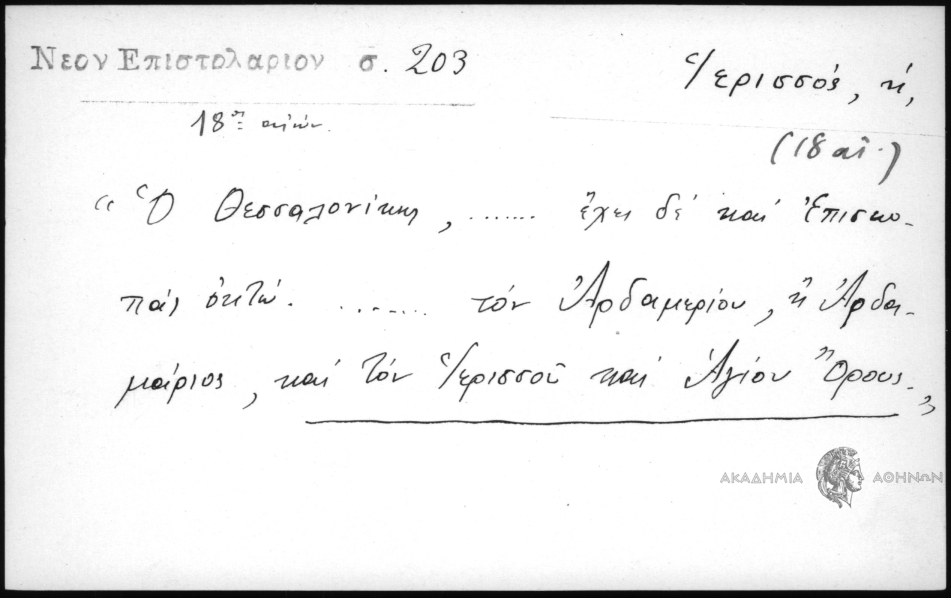 Νεον Επιστολαριον σ. 203
Ἱερισσός, ἡ,
18ος αἰών.
(18 αἰ.)
“Ὁ Θεσσαλονίκης, ....... ἔχει δέ καί Ἐπισκο-
πάς ὀκτώ. ....... τόν Ἀρδαμερίου, ἤ Ἀρδα-
μαίριος, καί τόν Ἱερισσοῦ καί Ἁγίου Ὄρους.„
ΑΚΑΔΗΜΙΑ ΑΘΗΝΩΝ